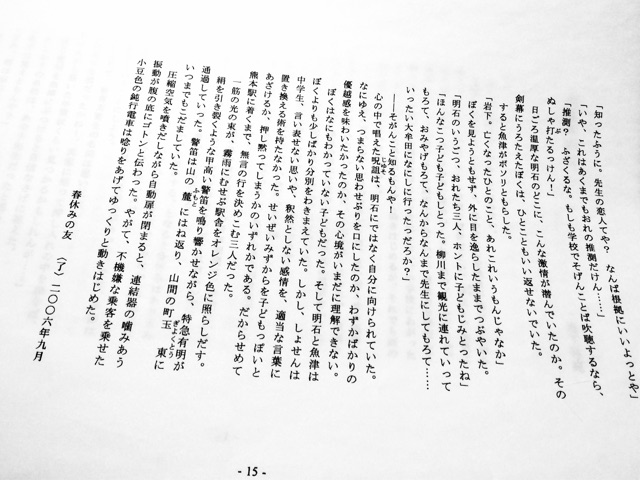 「知ったふうに。先生の恋人てや？　なんば根拠にいいよっとや」
「いや、これはあくまでもおれの推測だけん……」
「推測？　ふざくるな。もしも学校でそげんことば吹聴するなら、
ぬしゃ打たるっけん！」
日ごろ温厚な明石のどこに、こんな激情が潜んでいたのか。その
剣幕にうろたえたぼくは、ひとこともいい返せないでいた。
すると魚津がボソリともらした。
「岩下。亡くなったひとのこと、あれこれいうもんじゃなか」
ぼくを見ようともせず、外に目を逸らしたままでつぶやいた。
「明石のいうごつ、おれたち三人、ホントに子どもじみとったね」
「ほんなこつ子ども子どもしとった。柳川まで観光に連れていって
もろて、おみやげもろて、なんからなんまで先生にしてもろて……
いったい大牟田になにしに行ったっだろか？」
――そがんこと知るもんや！
心の中で唱えた呪詛は、明石にではなく自分に向けられていた。
なにゆえ、つまらない思わせぶりを口にしたのか、わずかばかりの
優越感を味わいたかったのか、その心境がいまだに理解できない。
ぼくはなにもわかっていない子どもだった。そして明石と魚津は
ぼくよりも少しばかり分別をわきまえていた。しかし、しょせんは
中学生、言い表せない思いや、釈然としない感情を、適当な言葉に
置き換える術を持たなかった。せいぜいみずからを子どもっぽいと
あざけるか、押し黙ってしまうかのいずれかである。だからせめて
熊本駅に着くまで、無言の行を決めこむ三人だった。
一筋の光の束が、霧雨にむせぶ駅舎をオレンジ色に照らしだす。
絹を引き裂くような甲高い警笛を鳴り響かせながら、特急有明が
通過していった。警笛は山の麓にはね返り、山間の町玉東に
いつまでもこだましていた。
圧縮空気を噴きだしながら自動扉が閉まると、連結器の噛みあう
振動が腹の底にゴトンと伝わった。やがて、不機嫌な乗客を乗せた
小豆色の鈍行電車は唸りをあげてゆっくりと動きはじめた。
春休みの友　（了）二〇〇六年九月
- 15 -